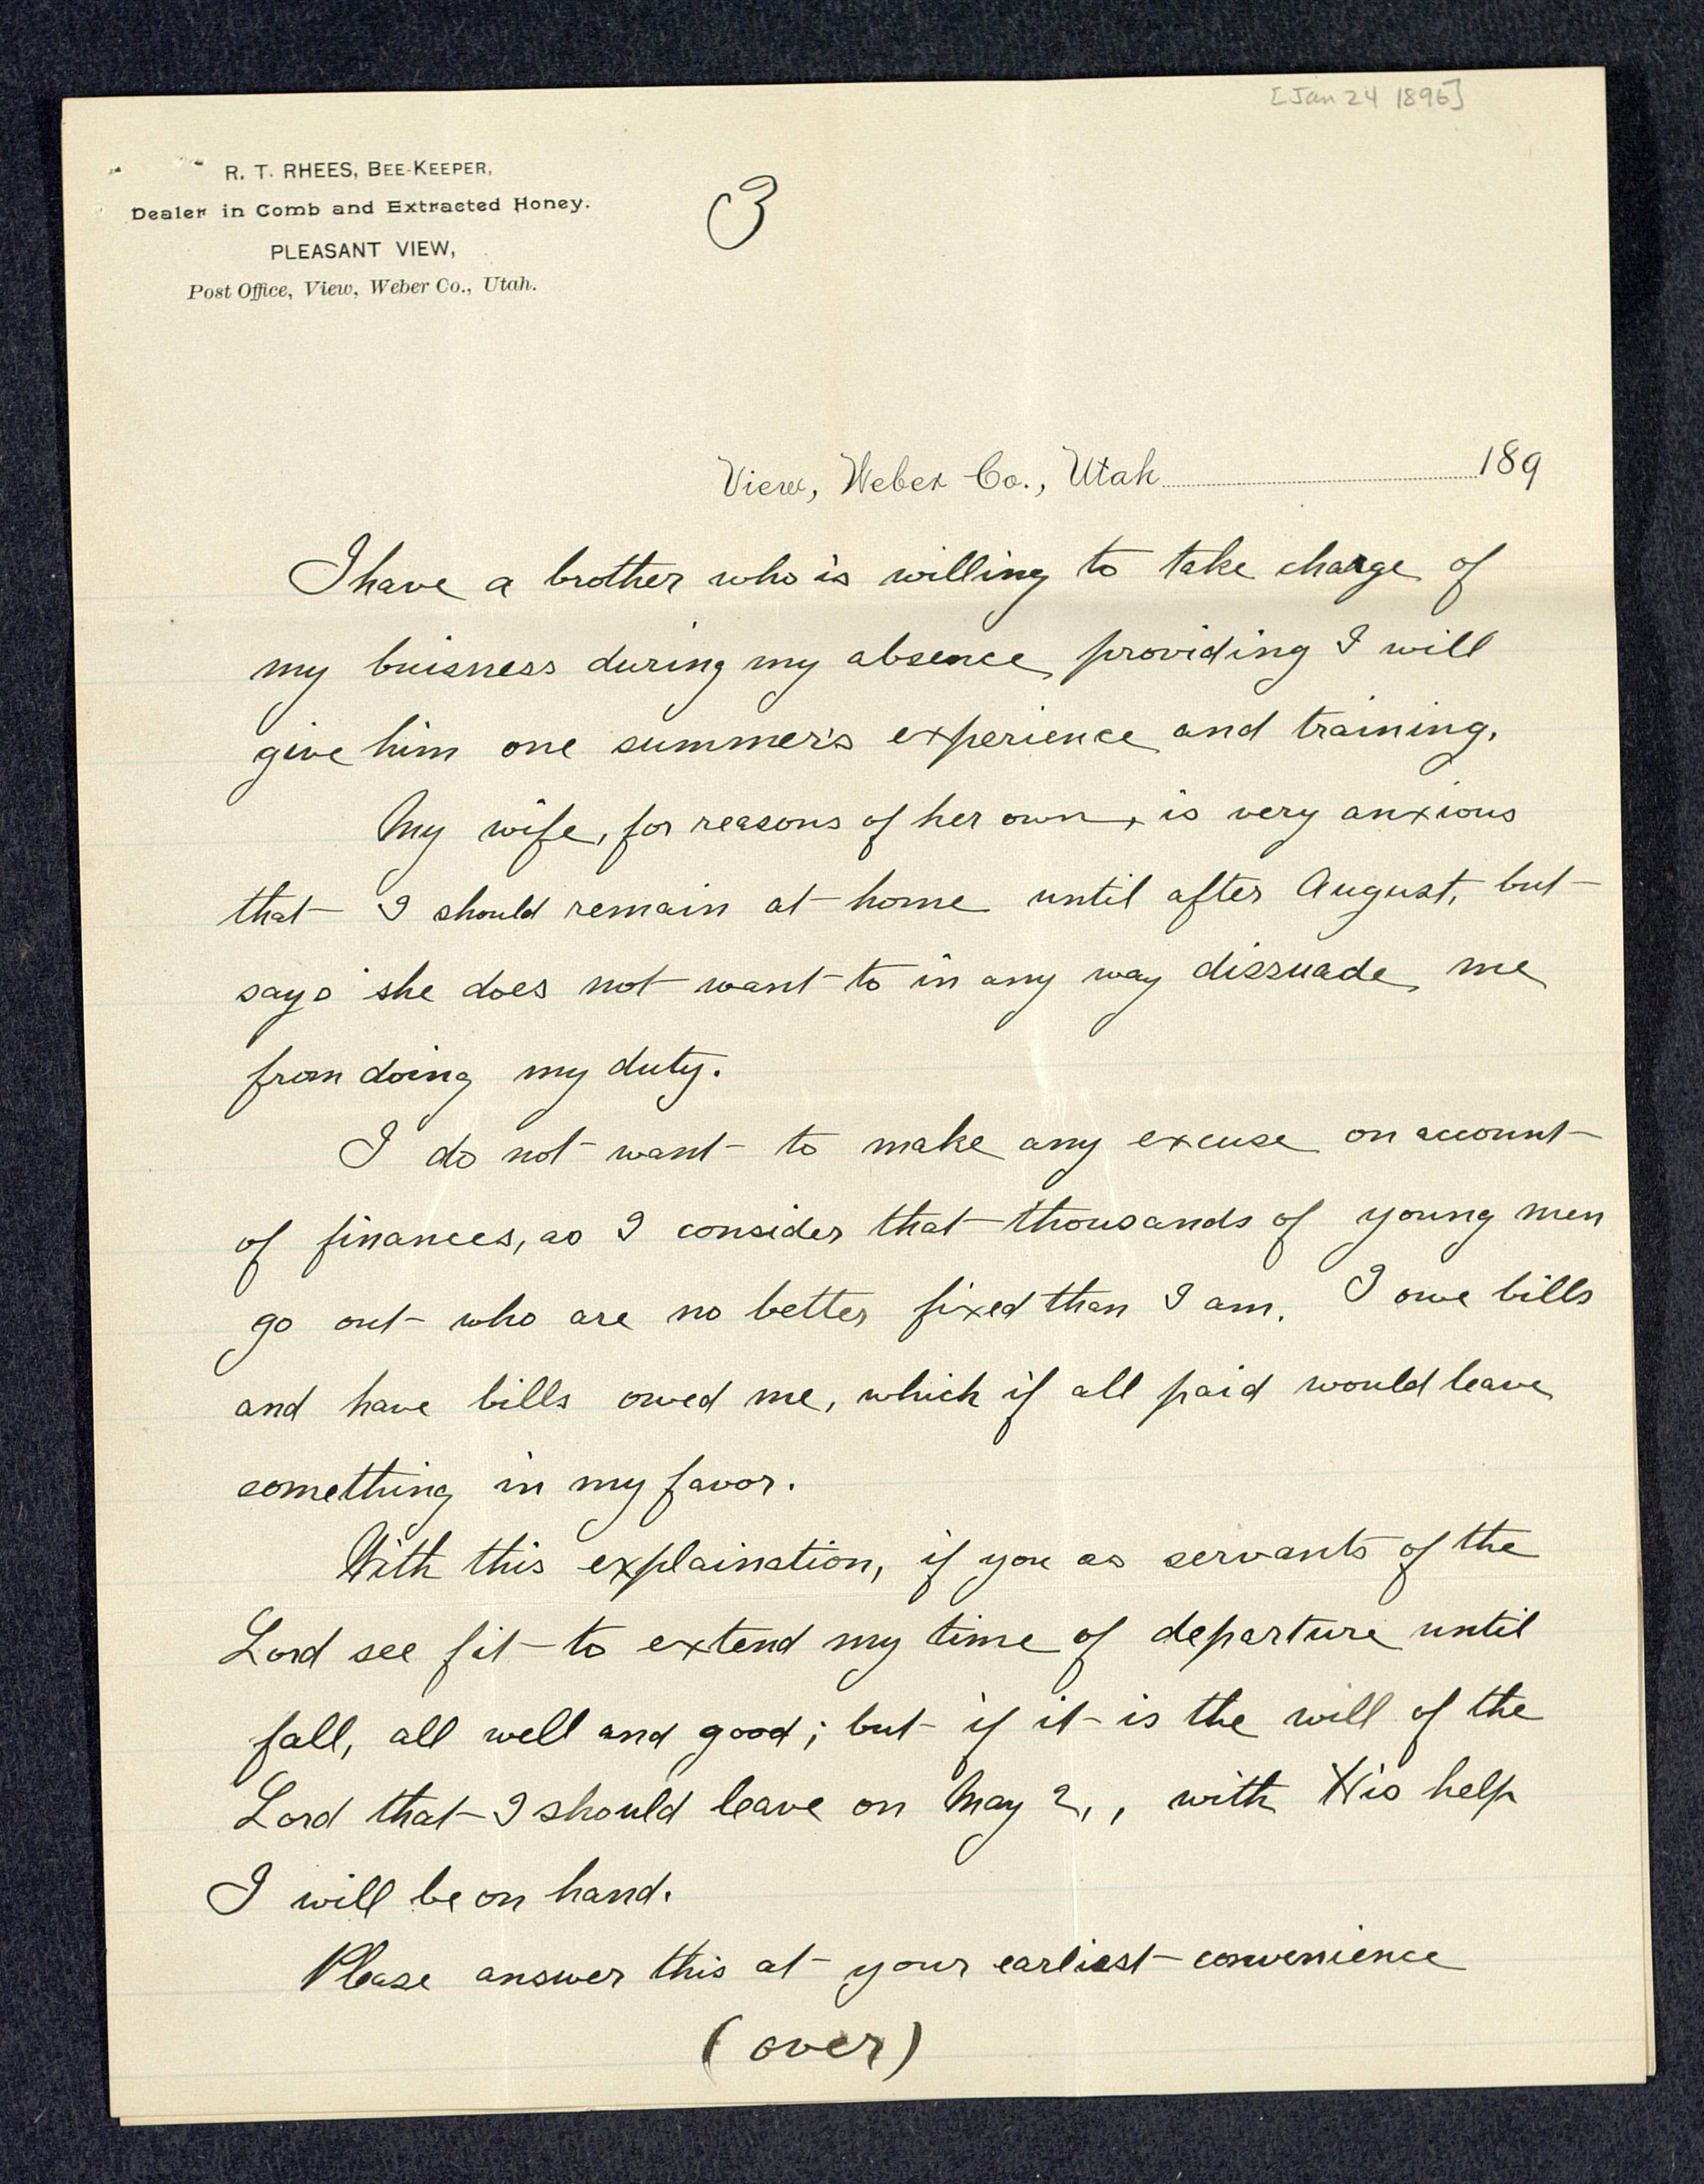 [Jan 24 1896]
R. T. RHEES, BEE-KEEPER,
Dealer in Comb and Extracted Honey.
PLEASANT VIEW,
Post Office, View, Weber Co., Utah.
3
View, Weber Co., Utah 189
I have a brother who is willing to take charge of
my buisness during my absence providing I will
give him one summer's experience and training.
My wife, for reasons of her own, is very anxious
that I should remain at home until after August, but
says she does not want to in any way dissuade me
from doing my duty.
I do not want to make any excuse on account
of finances, as I consider that thousands of young men
go out who are no better fixed than I am. I owe bills
and have bills owed me, which if all paid would leave
something in my favor.
With this explaination, if you as servants of the
Lord see fit to extend my time of departure until
fall, all well and good; but if it is the will of the
Lord that I should leave on May 2,, with His help
I will be on hand.
Please answer this at your earliest convenience
(over)